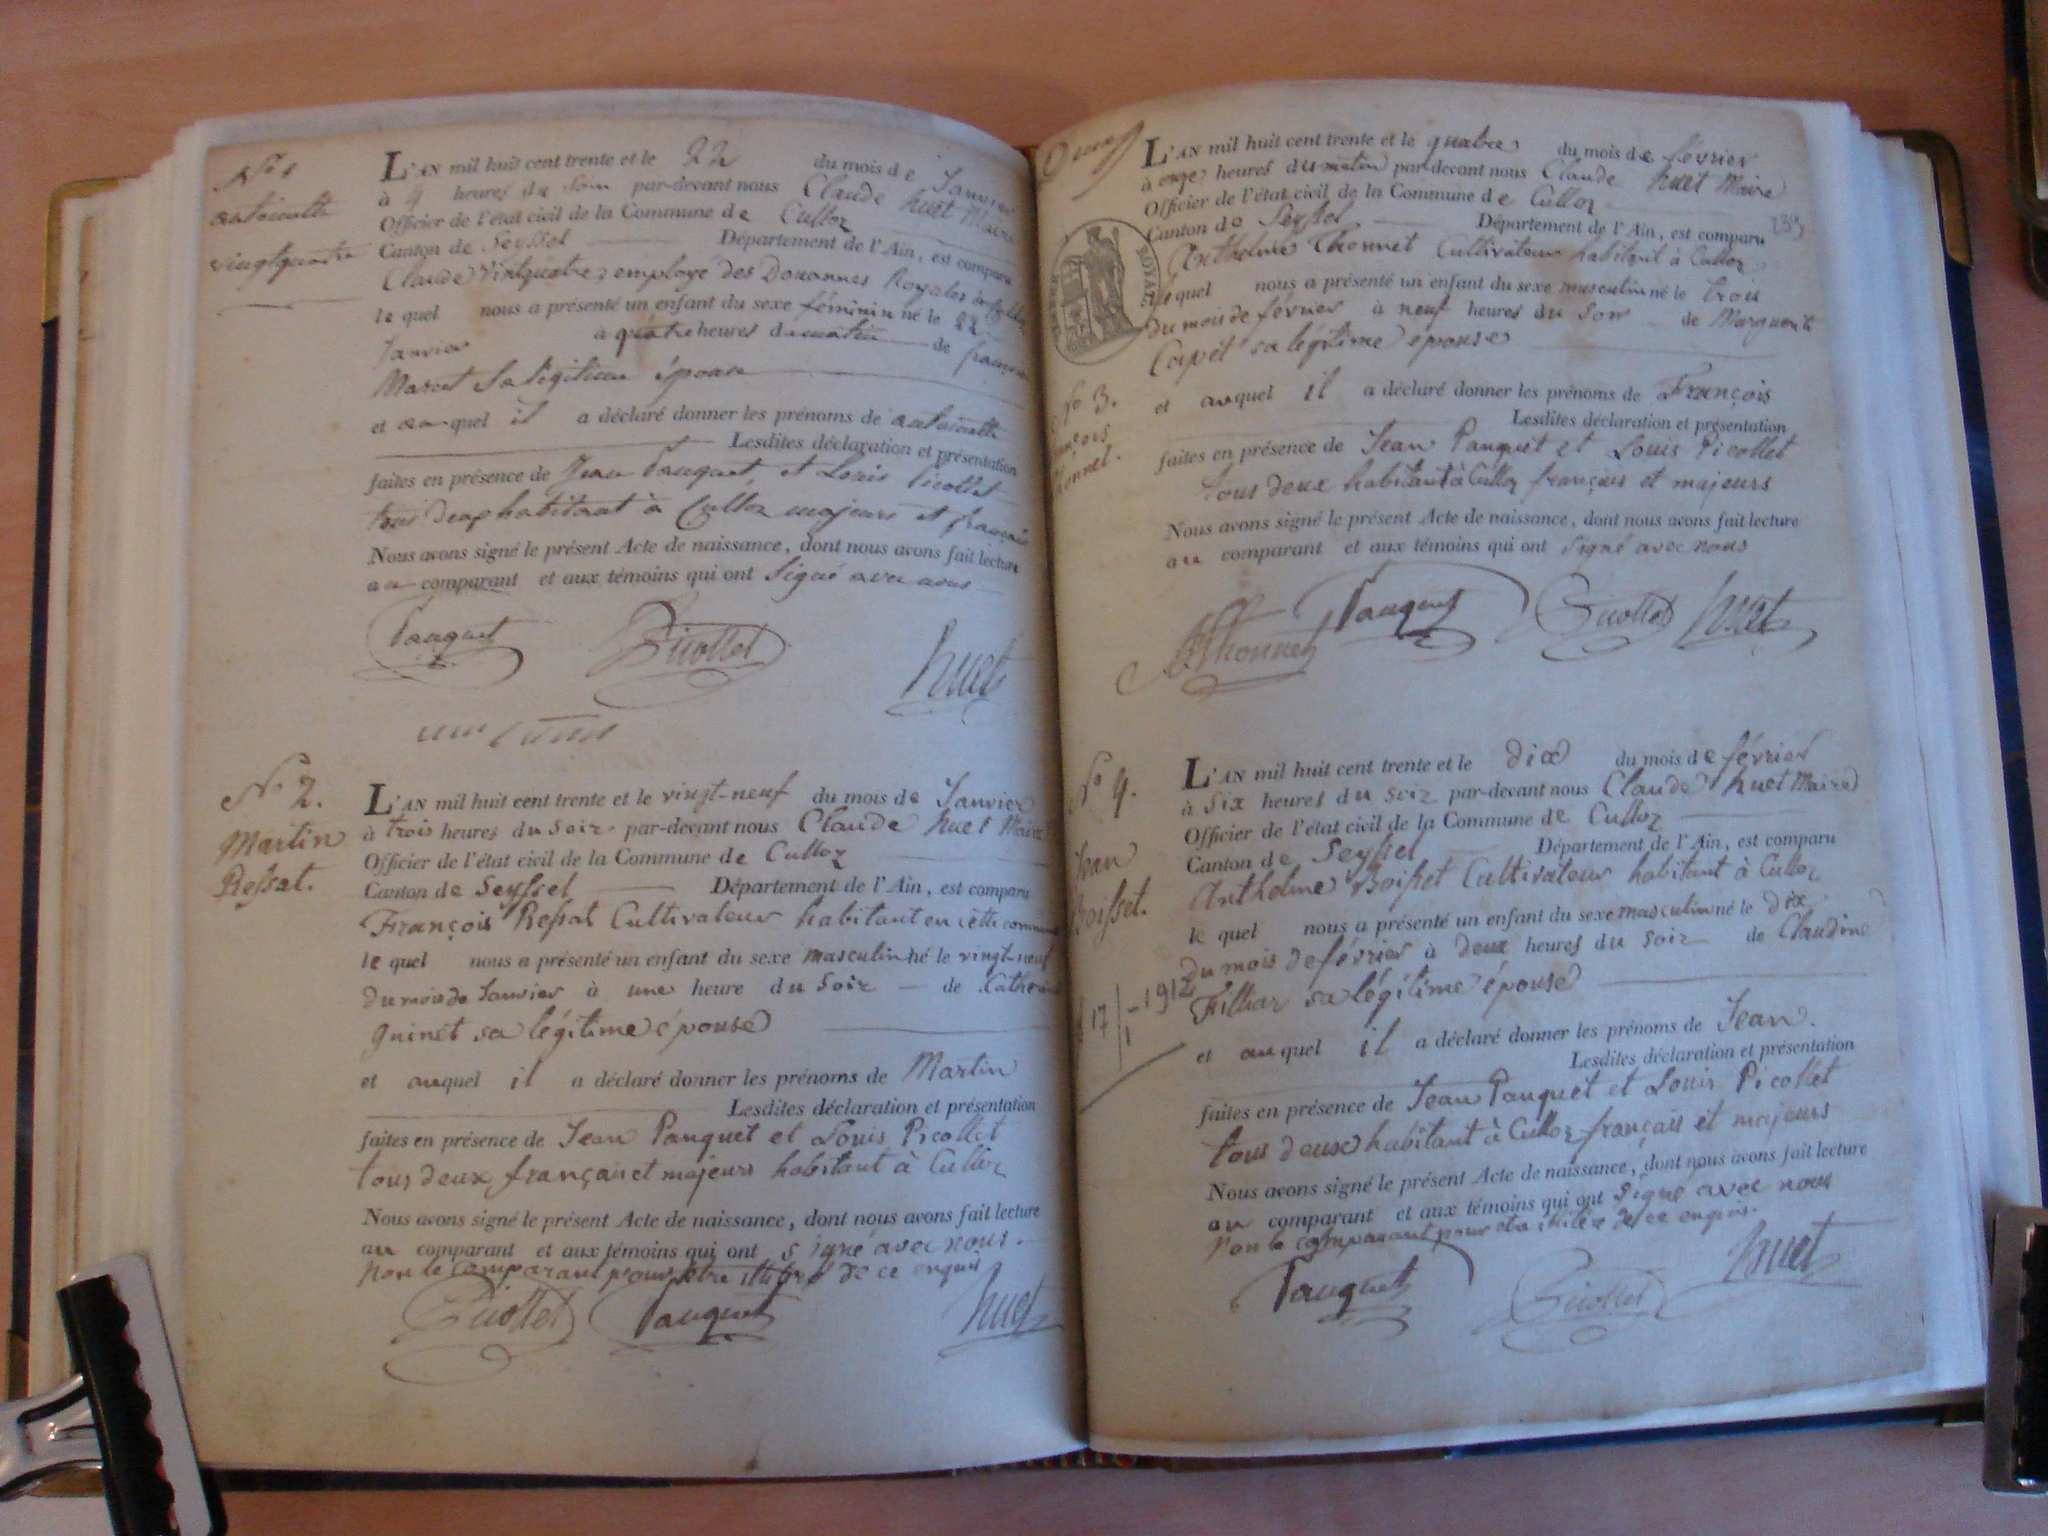 N° 1
antoinette
vingtquatre
L'AN mil huit cent trente et le 22 du mois de Janvier
à 4 heures du soir par-devant nous Claude huet Maire
Officier de l'état civil de la Commune de Culloz
Canton de Seyssel Département de l'Ain, est comparu
Claude Vintquatre employé des Douannes Royales à Culloz
le quel nous a présenté un enfant du sexe féminin né le 22
Janvier à quatre heures du matin de françoise
Marcet sa légitime épouse
et auquel il a déclaré donner les prénoms de antoinette
Lesdites déclaration et présentation
faites en présence de Jean Pauquet et Louis Picollet
tous deux habitant à Culloz majeurs et français
Nous avons signé le présent Acte de naissance, dont nous avons fait lecture
au comparant et aux témoins qui ont signé avec nous
Pauquet Picollet huet
N° 2.
Martin
Ressat.
L'AN mil huit cent trente et le vingt-neuf du mois de Janvier
à trois heures du soir par-devant nous Claude huet Maire
Officier de l'état civil de la Commune de Culloz
Canton de Seyssel Département de l'Ain, est comparu
François Ressat Cultivateur habitant en cette commune
le quel nous a présenté un enfant du sexe masculin né le vingt-neuf
du mois de Janvier à une heure du soir de Catherine
guinet sa légitime épouse
et auquel il a déclaré donner les prénoms de Martin
Lesdites déclaration et présentation
faites en présence de Jean Pauquet et Louis Picollet
tous deux français et majeurs habitant à Culloz
Nous avons signé le présent Acte de naissance, dont nous avons fait lecture
au comparant et aux témoins qui ont signé avec nous.
Non le comparant pour être illitéré de ce enquis
Picollet Pauquet huet
L'AN mil huit cent trente et le quatre du mois de février
à onze heures du matin par-devant nous Claude huet Maire
Officier de l'état civil de la Commune de Culloz
Canton de Seyssel Département de l'Ain, est comparu
Anthelme Thonnet Cultivateur habitant à Culloz
le quel nous a présenté un enfant du sexe masculin né le trois
du mois de février à neuf heures du soir de Marguerite
Capet sa légitime épouse
ROYAL
N° 3.
François
Thonnet.
et auquel il a déclaré donner les prénoms de François
Lesdites déclaration et présentation
faites en présence de Jean Pauquet et Louis Picollet
tous deux habitant à Culloz français et majeurs
Nous avons signé le présent Acte de naissance, dont nous avons fait lecture
au comparant et aux témoins qui ont signé avec nous
Thonnet Pauquet Picollet huet
N° 4.
Jean
Boisset.
L'AN mil huit cent trente et le dix du mois de février
à six heures du soir par-devant nous Claude huet Maire
Officier de l'état civil de la Commune de Culloz
Canton de Seyssel Département de l'Ain, est comparu
Anthelme Boisset Cultivateur habitant à Culloz
le quel nous a présenté un enfant du sexe masculin né le dix
du mois de février à deux heures du soir de Claudine
Filliar sa légitime épouse
et auquel il a déclaré donner les prénoms de Jean.
Lesdites déclaration et présentation
faites en présence de Jean Pauquet et Louis Picollet
tous deux habitant à Culloz français et majeurs
Nous avons signé le présent Acte de naissance, dont nous avons fait lecture
au comparant et aux témoins qui ont signé avec nous
Non le comparant pour être illitéré de ce enquis.
Pauquet Picollet huet